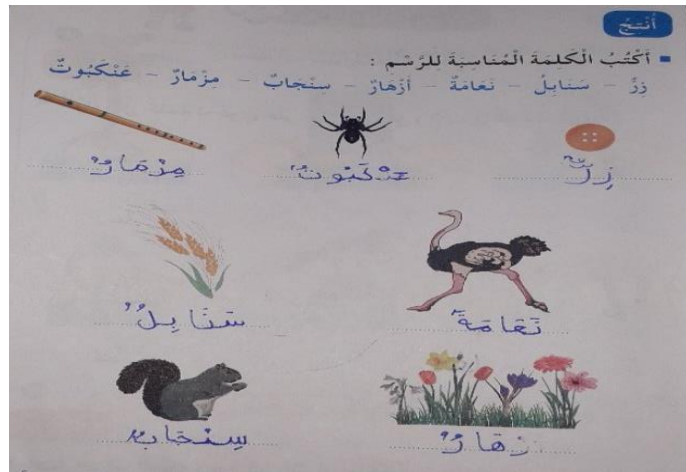 أُنْتِجُ
■ أَكْتُبُ الْكَلِمَةَ الْمُنَاسِبَةَ لِلرَّسْمِ :
زِرٌّ – سَنَابِلُ – نَعَامَةٌ – أَزْهَارٌ – سِنْجَابٌ – مِزْمَارٌ – عَنْكَبُوتٌ
زِرٌّ عَنْكَبُوتٌ مِزْمَارٌ
نَعَامَةٌ سَنَابِلٌ
زهَارٌ سِنْجَابٌ